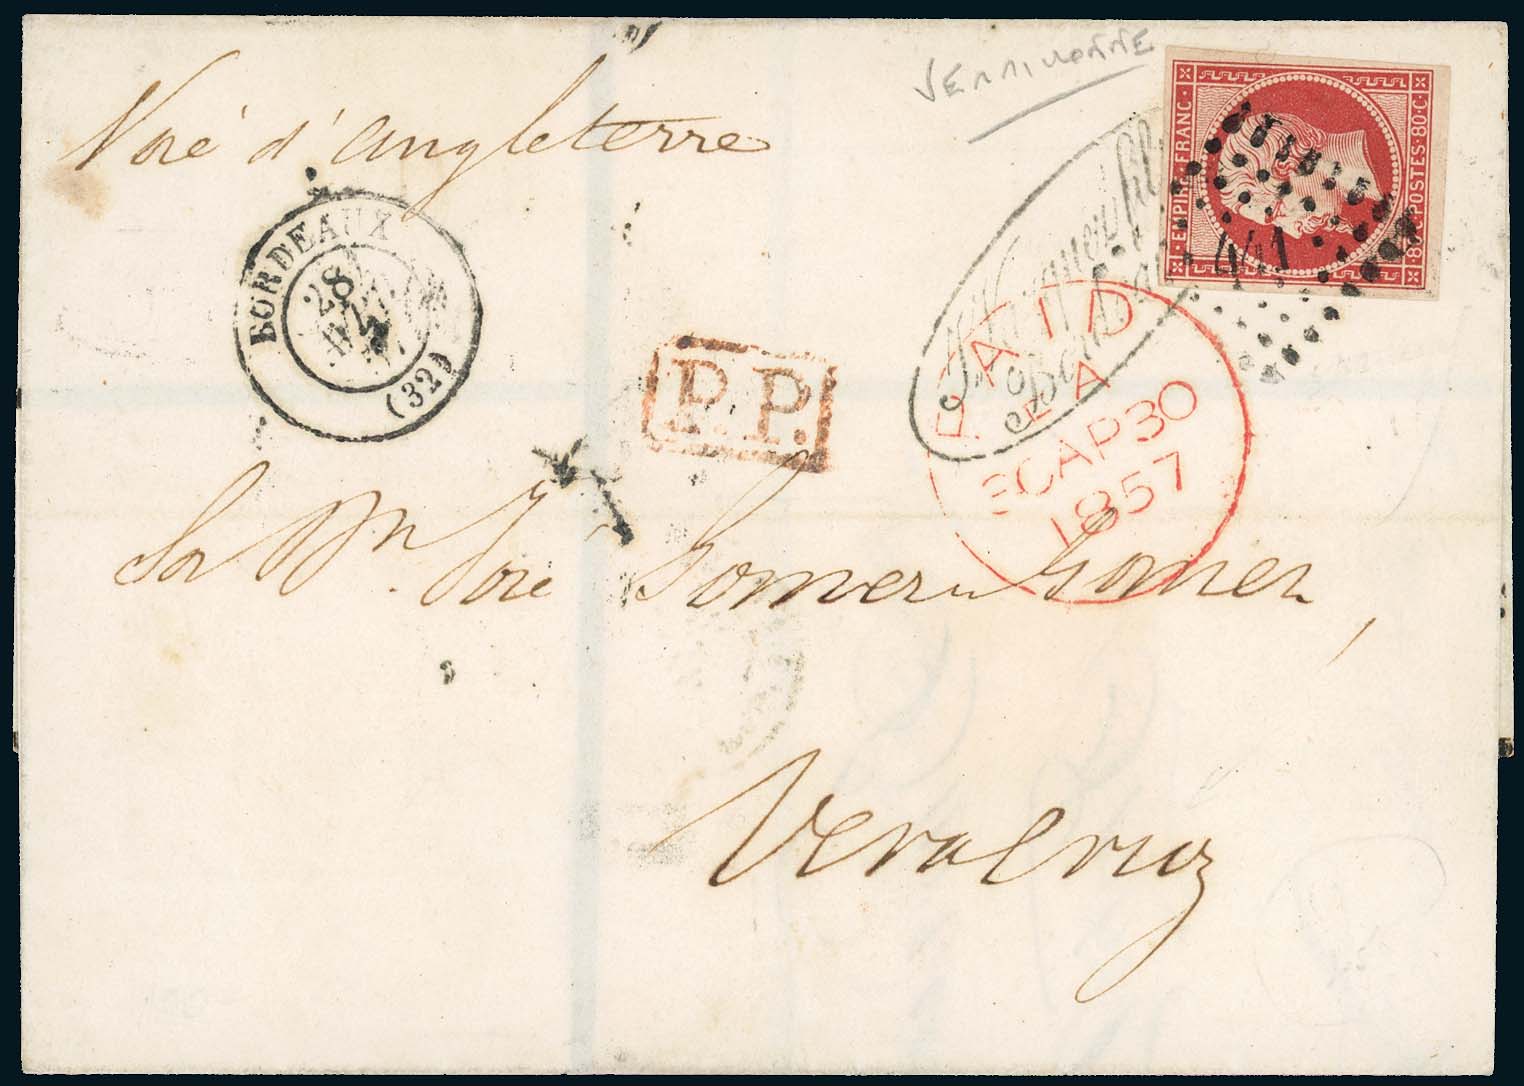 VERMILLONNÉ
Voie d'angleterre
EMPIRE FRANC.
80 C. POSTES. 80 C.
441
BORDEAUX
28
(32)
P.P.
PAID
LA
AP 30
1857
Sor Dn. José Gomez Gomez,
Veracruz